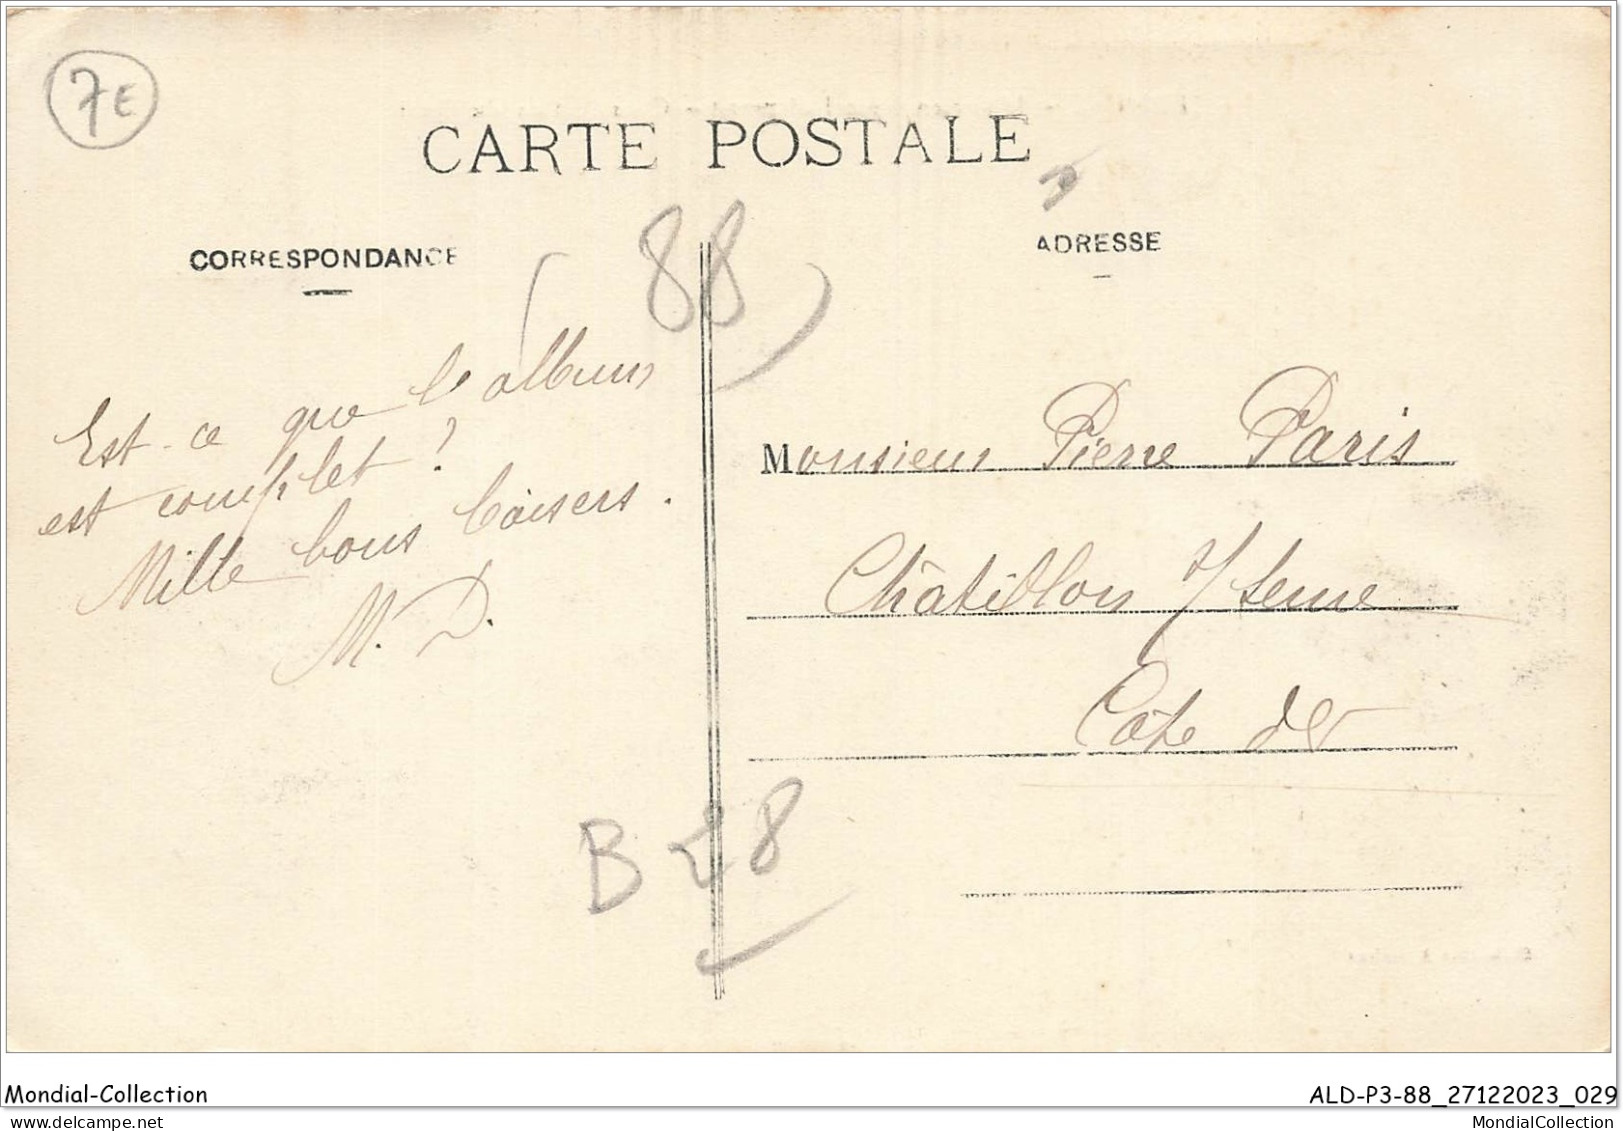 7E
CARTE POSTALE
CORRESPONDANCE
ADRESSE
88
Est-ce que l'album
est complet ?
Mille bons baisers.
M. D.
Monsieur Pierre Paris
Châtillon s/ Seine
Côte d'Or
B 28
Mondial-Collection
ALD-P3-88_27122023_029
MondialCollection